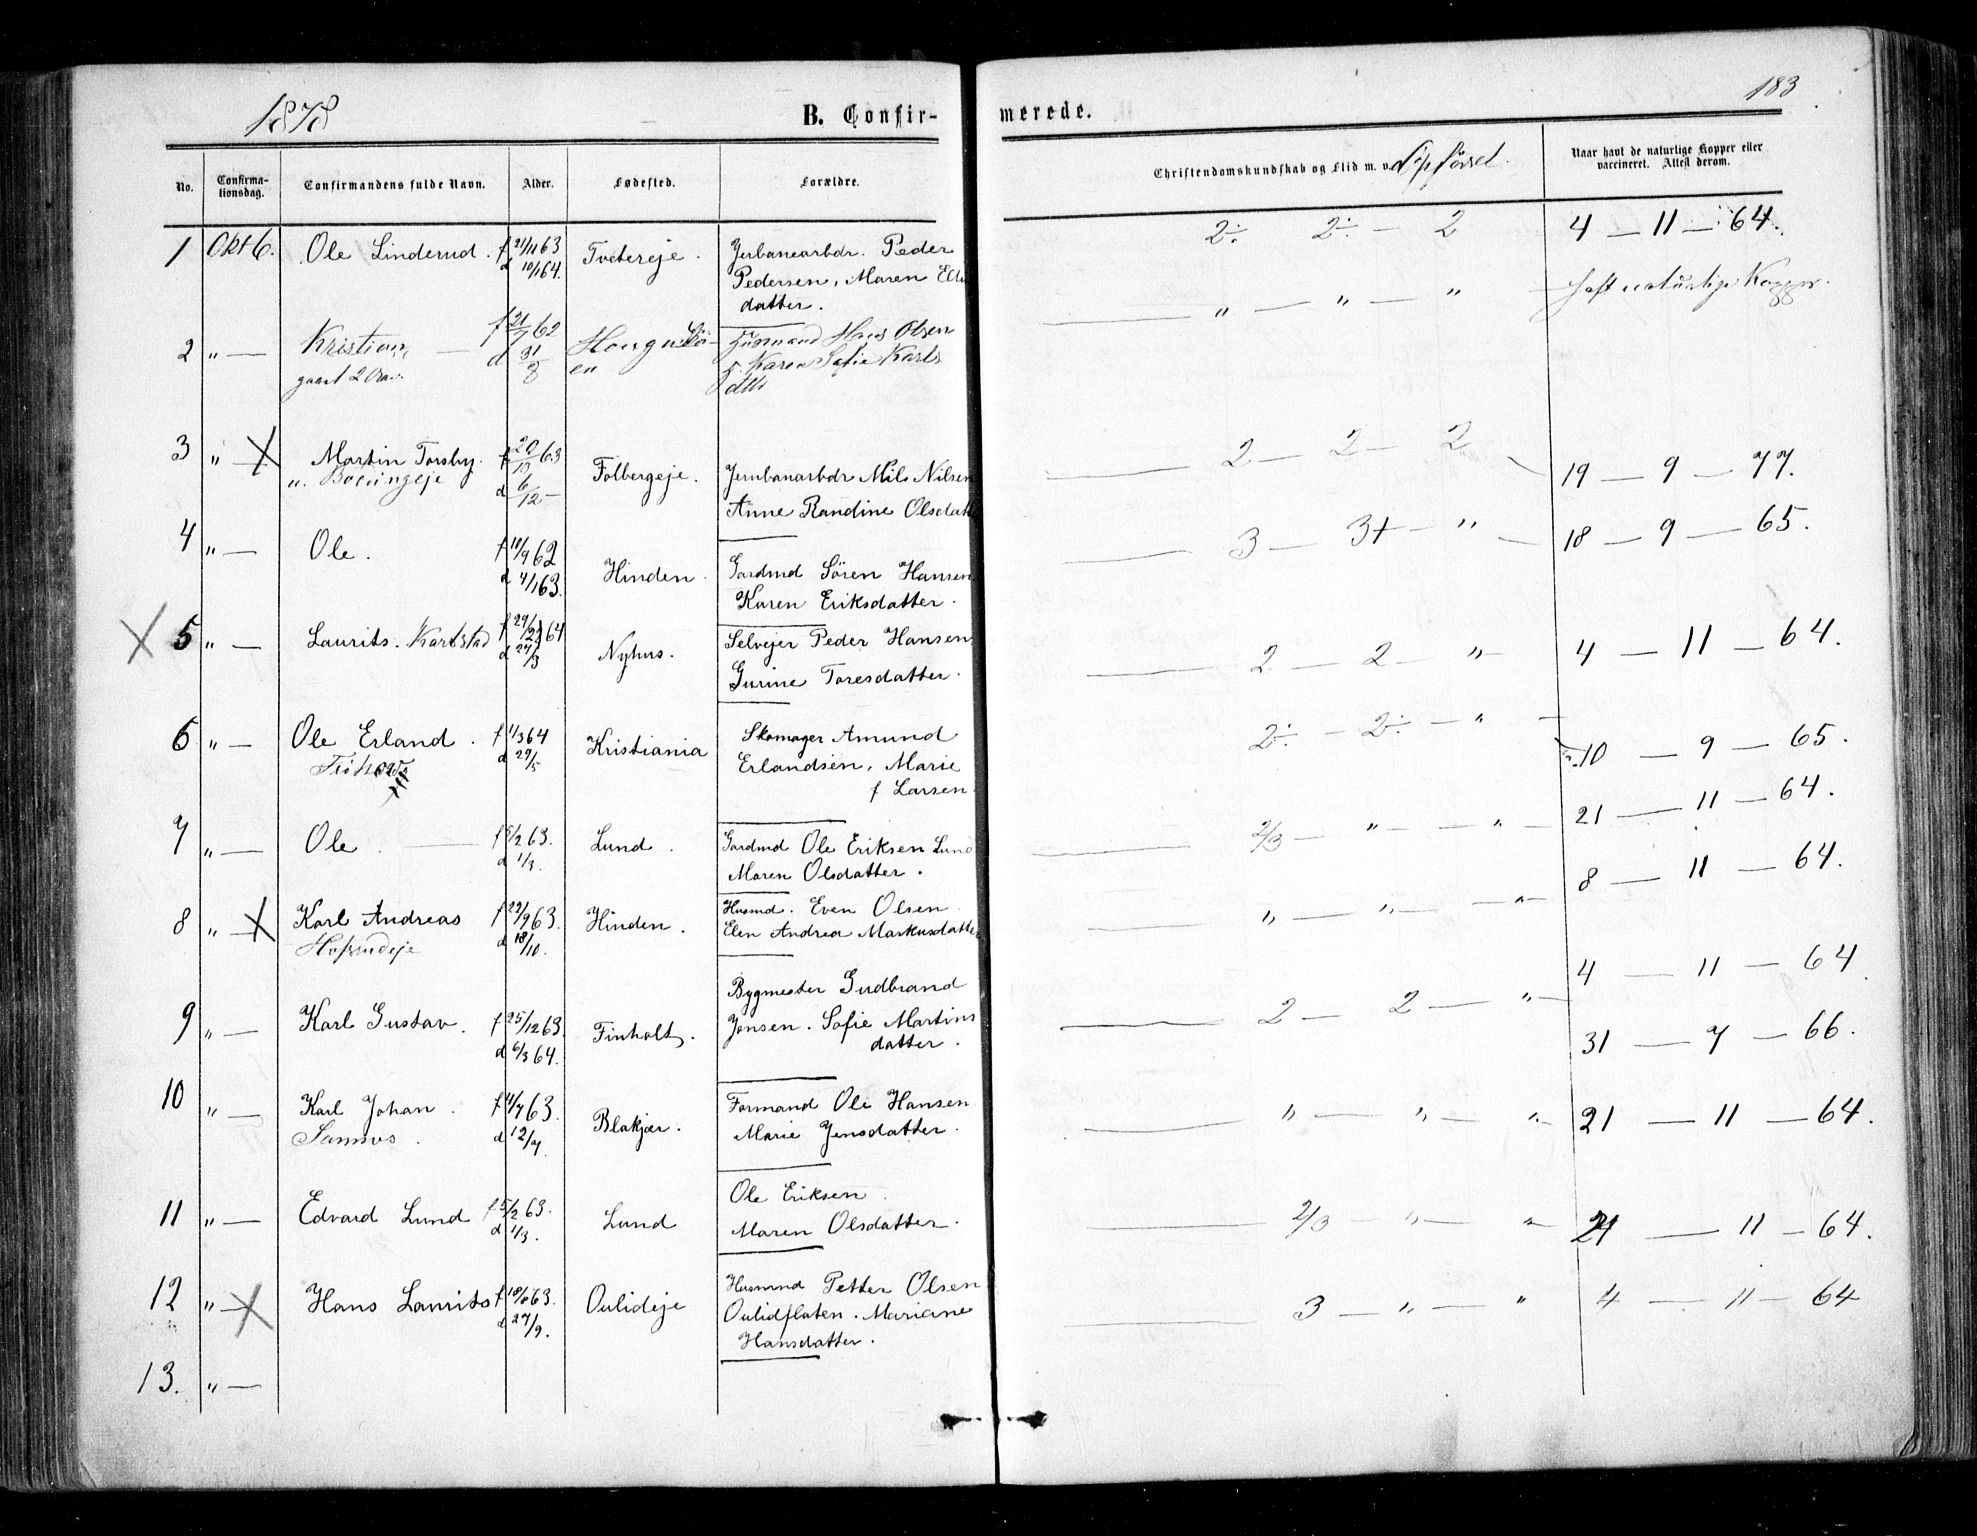 1878
B. Confir-
merede.
183
No.
Confirma-
tionsdag.
Confirmandens fulde Navn.
Alder.
Fødested.
Forældre.
Christendomskundskab og Flid m. v. Opførsel.
Naar havt de naturlige Kopper eller
vaccineret. Attest derom.
1 Okt 6. Ole Linderud. f 21/11 63 Tvetereje. Jerbanearbdr. Peder 2÷ 2÷ — 2 4 — 11 — 64.
d 10/1 64. Pedersen, Maren
datter.
2 „ — Kristian, f 21/7 62 Husmand Hans Olsen „ — „ — „ haft naturlige Kopper.
gaaet 2 d 31/8 en Karen Sofie Karls
dtt
3 „ — X Martin Torsby. f 20/10 63 Folbergeje. Jernbanarbdr Nils Nilsen 2 — 2 — 2 19 — 9 — 77.
d 6/12 — Anne Randine Olsdatt
4 „ — Ole. f 10/9 62 Hinden. Gardmd Sören Hansen 3 — 3+ — „ 18 — 9 — 65.
d 4/1 63. Karen Eriksdatter.
X 5 „ — Laurits. Karlstad f 29/1 64 Nyhus. Selvejer Peder Hansen 2 — 2 — „ 4 — 11 — 64.
d 27/3 Gurine Toresdatter.
6 „ — Ole Erland. f 1/3 64 Kristiania Skomager Amund 2÷ — 2÷ — „ 10 — 9 — 65.
d 29/5 Erlandsen, Marie
f Larsen.
7 „ — Ole. f 5/2 63. Lund. Gardmd Ole Eriksen Lund 2/3 — „ — „ 21 — 11 — 64.
d 1/3. Maren Olsdatter.
8 „ — X Karl Andreas f 22/9 63. Hinden. Husmd. Even Olsen „ — „ — „ 8 — 11 — 64.
d 18/10. Elen Andrea Markusdatter
9 „ — Karl Gustav. f 25/12 63. Finholt. Bygmester Gudbrand 2 — 2 — „ 4 — 11 — 64
d 6/3 64. Jonsen. Sofie Martins
datter. 31 — 7 — 66.
10 „ — Karl Johan. f 4/7 63. Blakjær. Formand Ole Hansen „ — „ — „ 21 — 11 — 64.
Sannes. d 12/7. Marie Jensdatter.
11 „ — Edvard Lund f 5/2 63. Lund Ole Eriksen 2/3 — „ — „ 21 — 11 — 64.
d 1/3. Maren Olsdatter.
12 „ — X Hans Laurits f 18/8 63. Oulideje Husmnd Petter Olsen 3 — „ — „ 4 — 11 — 64
d 27/9. Oulidflaten. Mariane
Hansdatter.
13. „ —